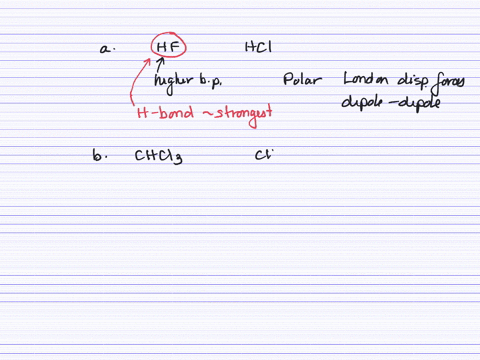 a. HF HCl
higher b.p. Polar London disp forces
dipole-dipole
H-bond ~strongest
b. CHCl3 Cl